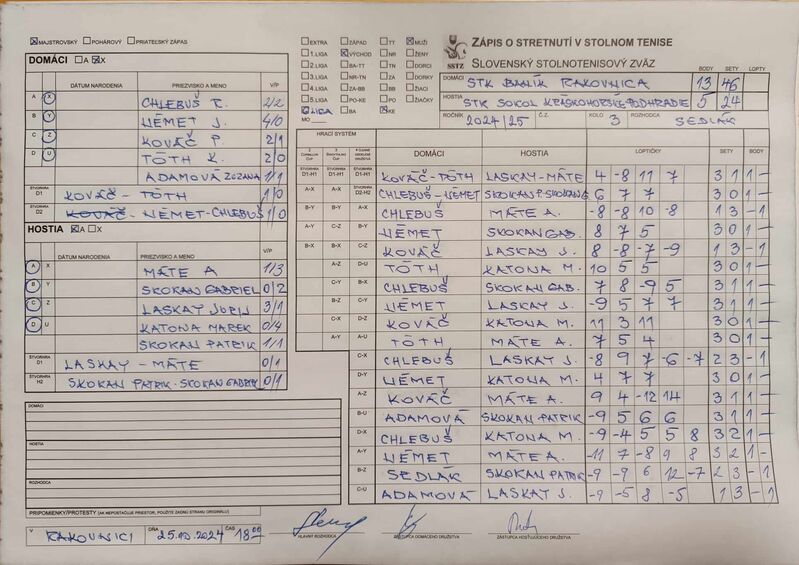 MAJSTROVSKÝ POHÁROVÝ PRIATEĽSKÝ ZÁPAS
DOMÁCI A X
DÁTUM NARODENIA PRIEZVISKO A MENO V/P
A X CHLEBUŠ R. 2/2
B Y NÉMET J. 4/0
C Z KOVÁČ P. 2/1
D U TÓTH K. 2/0
ADAMOVÁ ZUZANA 1/1
ŠTVORHRA D1 KOVÁČ - TÓTH 1/0
ŠTVORHRA D2 NÉMET-CHLEBUŠ 1/0
HOSTIA A X
DÁTUM NARODENIA PRIEZVISKO A MENO V/P
A X MÁTE A 1/3
B Y SKOKAN GABRIEL 0/2
C Z LASKAY JURIJ 3/1
D U KATONA MAREK 0/4
SKOKAN PATRIK 1/1
ŠTVORHRA D1 LASKAY - MÁTE 0/1
ŠTVORHRA H2 SKOKAN PATRIK - SKOKAN GABRIEL 0/1
DOMÁCI
HOSTIA
ROZHODCA
PRIPOMIENKY/PROTESTY (AK NEPOSTAČUJE PRIESTOR, POUŽITE ZADNÚ STRANU ORIGINÁLU)
V RAKOVNICI DŇA 25.10.2024 ČAS 18:00
HLAVNÝ ROZHODCA ZÁSTUPCA DOMÁCEHO DRUŽSTVA ZÁSTUPCA HOSŤUJÚCEHO DRUŽSTVA
EXTRA ZÁPAD TT MUŽI
1.LIGA VÝCHOD NR ŽENY
2.LIGA BA-TT TN DORCI
3.LIGA NR-TN ZA DORKY
4.LIGA ZA-BB BB ŽIACI
5.LIGA PO-KE PO ŽIAČKY
6.LIGA BA KE
MO
SSTZ
ZÁPIS O STRETNUTÍ V STOLNOM TENISE
SLOVENSKÝ STOLNOTENISOVÝ ZVÄZ
BODY SETY LOPTY
DOMÁCI STK BANÍK RAKOVNICA 13 46
HOSTIA STK SOKOL KRÁSKOHORSKÉ PODHRADIE 5 24
ROČNÍK 2024/25 Č.Z. KOLO 3 ROZHODCA SEDLÁK
HRACÍ SYSTÉM
DOMÁCI HOSTIA LOPTIČKY SETY BODY
D1-H1 D1-H1 D1-H1 KOVÁČ-TÓTH LASKAY-MÁTE 4 -8 11 7 3 1 1 -
A-X A-X D2-H2 CHLEBUŠ-NÉMET SKOKAN P. SKOKAN G 6 7 7 3 0 1 -
B-Y B-Y A-X CHLEBUŠ MÁTE A. -8 -8 10 -8 1 3 - 1
A-Y C-Z B-Y NÉMET SKOKAN GAB. 8 7 5 3 0 1
B-X B-X C-Z KOVÁČ LASKAY J. 8 -8 -7 -9 1 3 - 1
A-Z D-U TÓTH KATONA M. 10 5 5 3 0 1 -
C-Y B-X CHLEBUŠ SKOKAN GAB. 7 8 -9 5 3 1 1 -
B-Z C-Y NÉMET LASKAY J. -9 5 7 7 3 1 1 -
C-X D-Z KOVÁČ KATONA M. 11 3 11 3 0 1 -
A-Y A-U TÓTH MÁTE A. 7 5 4 3 0 1 -
C-X CHLEBUŠ LASKAY J. -8 9 7 -6 -7 2 3 - 1
D-Y NÉMET KATONA M. 4 7 7 3 0 1 -
A-Z KOVÁČ MÁTE A. 9 4 -12 14 3 1 1 -
B-U ADAMOVÁ SKOKAN PATRIK -9 5 6 6 3 1 1 -
D-X CHLEBUŠ KATONA M. -9 -4 5 5 8 3 2 1 -
A-Y NÉMET MÁTE A. -11 7 -8 9 8 3 2 1 -
B-Z SEDLÁK SKOKAN PATRIK -9 -9 6 12 -7 2 3 - 1
C-U ADAMOVÁ LASKAY J. -9 -5 8 -5 1 3 - 1